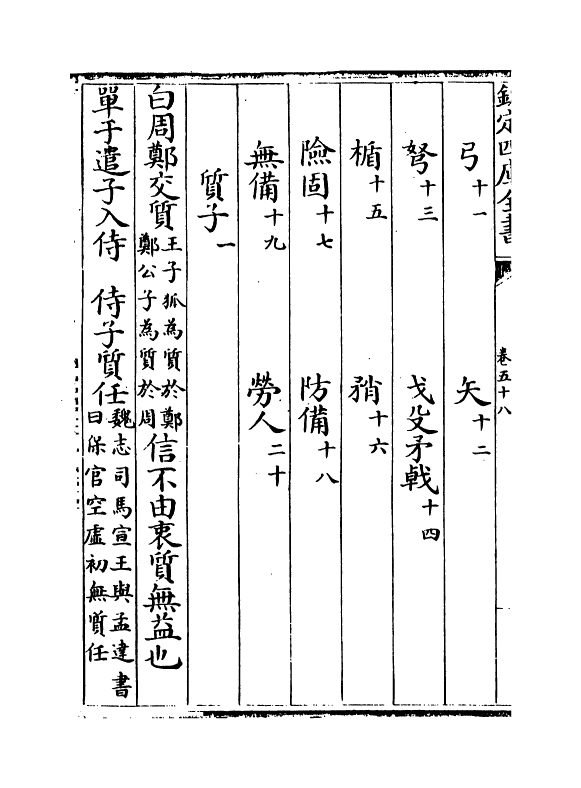 欽定四庫全書
卷五十八
弓十一 矢十二
弩十三 戈殳矛戟十四
楯十五 矟十六
險固十七 防備十八
無備十九 勞人二十
質子一
白周鄭交質王子狐為質於鄭鄭公子為質於周信不由衷質無益也
單于遣子入侍 侍子質任魏志司馬宣王與孟達書曰保官空虛初無質任